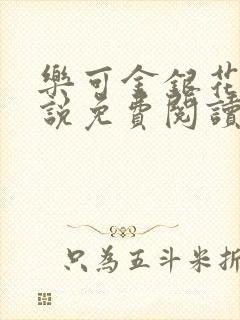 樂可金銀花
說免費閱讀
只為五斗米折